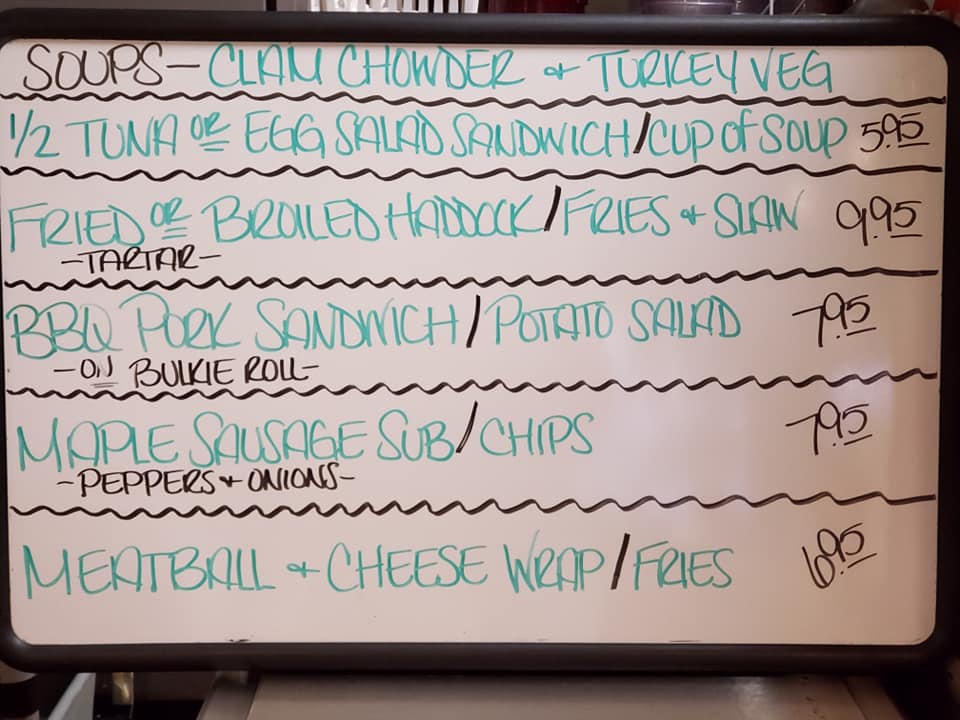 SOUPS - CLAM CHOWDER & TURKEY VEG
1/2 TUNA OR EGG SALAD SANDWICH/CUP of SOUP 5.95
FRIED OR BROILED HADDOCK/FRIES & SLAW 9.95
- TARTAR -
BBQ PORK SANDWICH/POTATO SALAD 7.95
- ON BULKIE ROLL -
MAPLE SAUSAGE SUB/CHIPS 7.95
- PEPPERS & ONIONS -
MEATBALL & CHEESE WRAP/FRIES 6.95